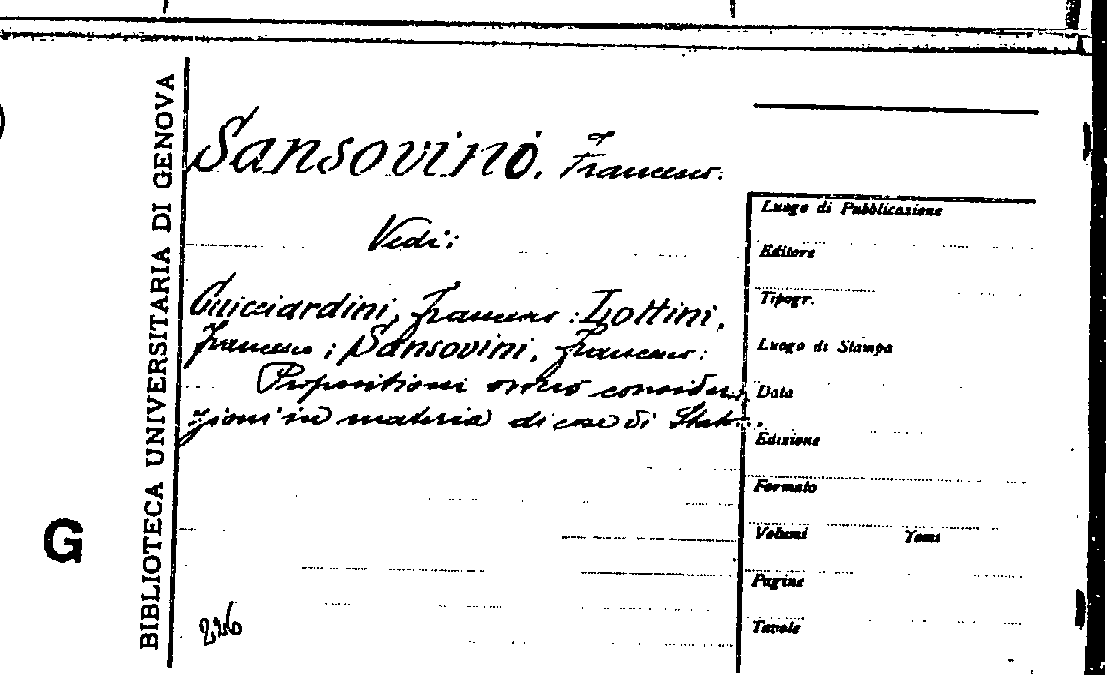 BIBLIOTECA UNIVERSITARIA DI GENOVA
G
Sansovino, Francesco.
Vedi:
Guicciardini, Francesco; Lottini,
Francesco; Sansovini, Francesco:
Propositioni overo considera
zioni in materia di cose di Stato...
226
Luogo di Pubblicazione
Editore
Tipogr.
Luogo di Stampa
Data
Edizione
Formato
Volumi Tomi
Pagine
Tavole